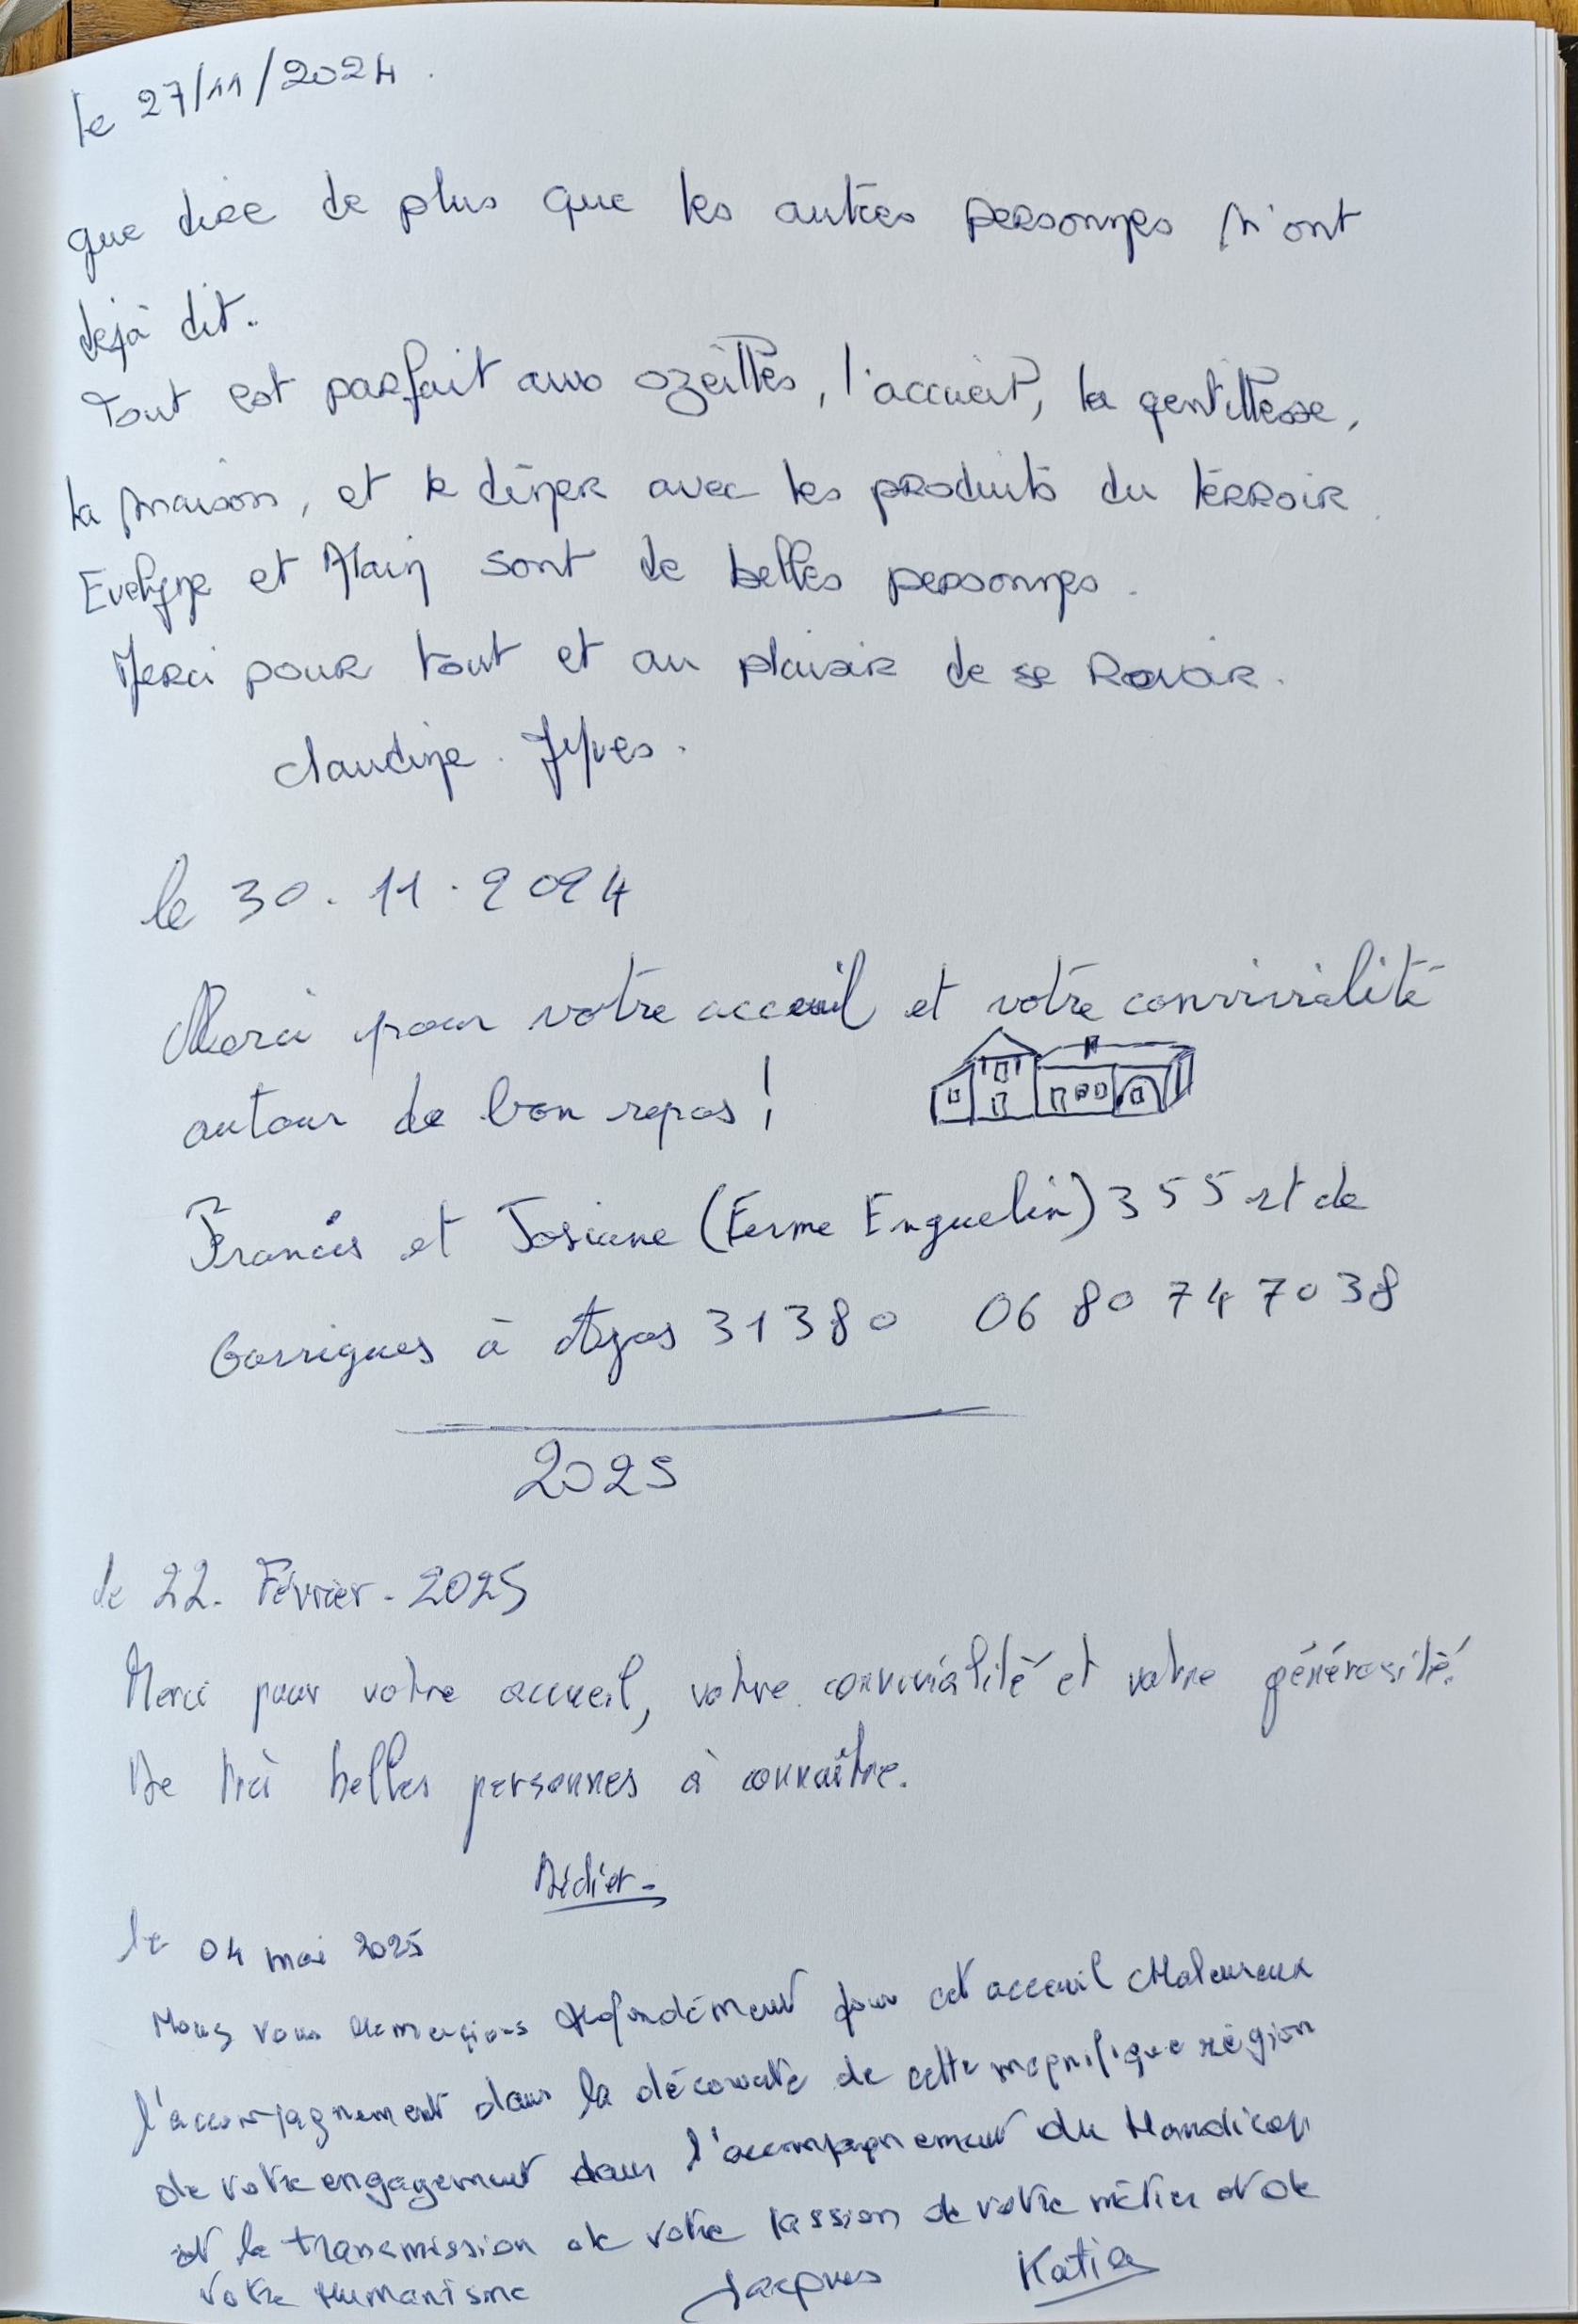 le 27/11/2024.
que dire de plus que les autres personnes n'ont
dejà dit.
Tout est parfait aux ozeilles, l'accueil, la gentillesse,
la maison, et le dîner avec les produits du terroir.
Evelyne et Alain sont de belles personnes.
Merci pour tout et au plaisir de se revoir.
Claudine. JYves.
le 30.11.2024
Merci pour votre acceuil et votre convivialité
autour de bon repas !
Francis et Josiane (Ferme Enguelin) 355 rt de
Garrigues à Azas 31380 06 80 74 70 38
2025
le 22. Février - 2025
Merci pour votre accueil, votre convivialité et votre générosité.
De très belles personnes à connaître.
Didier -
le 04 mai 2025
Nous vous remercions profondément pour cet acceuil chaleureux
l'accompagnement dans la découverte de cette magnifique région
de votre engagement dans l'accompagnement du Handicap
et la transmission de votre passion de votre métier et de
votre Humanisme Jacques Katia